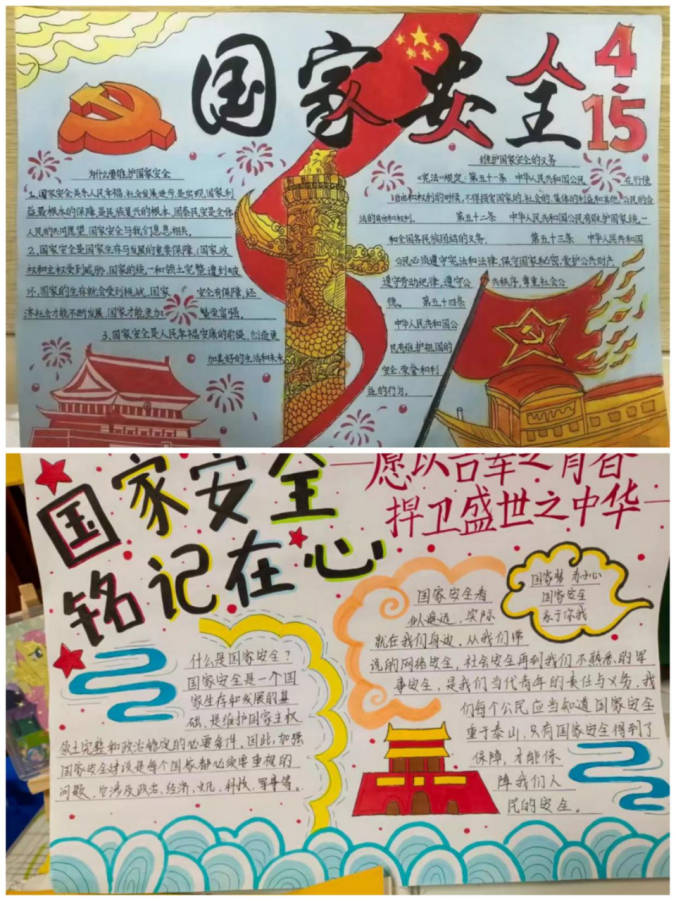 国家安全
4.15
为什么要维护国家安全
1、国家安全是人民幸福,社会发展进步,是实现,国家利
益最根本的保障,是民族复兴的根本,国泰民安是全体
人民的共同愿望,国家安全与我们息息相关。
2、国家安全是国家生存与发展的重要保障,国家政
权和主权受到威胁,国家的统一和领土完整遭到破
坏,国家的生存就会受到挑战,国家 安全有保障,经
济社会才能不断发展,国家才能更加 繁荣富强。
3、国家安全是人民幸福安康的前提,创造更
加美好的生活和未来
维护国家安全的义务
《宪法》规定:第五十一条 中华人民共和国公民 在行使
自由和权利的时候,不得损害国家的,社会的,集体的利益和其他公民的合
法的自由和权利。 第五十二条 中华人民共和国公民有维护国家统一
和全国各民族团结的义务。 第五十三条 中华人民共和国
公民必须遵守宪法和法律,保守国家秘密,爱护公共财产
遵守劳动纪律,遵守公 共秩序,尊重社会公
德。 第五十四条
中华人民共和国公
民有维护祖国的
安全,荣誉和利
益的行为。
国家安全
铭记在心
愿以吾辈之青春
捍卫盛世之中华
什么是国家安全?
国家安全是一个国
家生存和发展的基
础,是维护国家主权
领土完整和政治稳定的必要条件。因此,加强
国家安全建设是每个国家都必须要重视的
问题,它涉及政治、经济、文化、科技、军事等。
国家安全看
似遥远,实际
就在我们身边,从我们常
说的网络安全,社会安全再到我们不熟悉的军
事安全,是我们当代青年的责任与义务,我
们每个公民应当知道国家安全
重于泰山,只有国家安全得到了
保障,才能保
障我们人
民的安全。
国家安全
系于你我